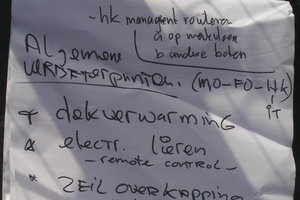 - hk management routeren
a op
b andere boten
Algemene
verbeterpunten. (MO-FO-HK)
IT
* dekverwarming
* electr. lieren
- remote control -
* ZEIL OVERKAPPING